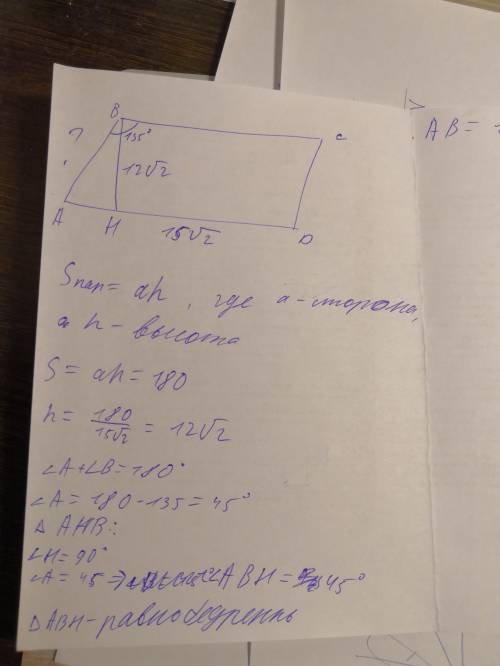 B
135°
C
?
12√2
A
H
15√2
D
Sпар = ah, где a - сторона,
a h - высота
S = ah = 180
h = 180/15√2 = 12√2
∠A+∠B=180°
∠A = 180 - 135 = 45°
△ AHB:
∠H = 90°
∠A = 45 ⇒ ∠ABH = 45°
△ABH - равнобедренный
AB =